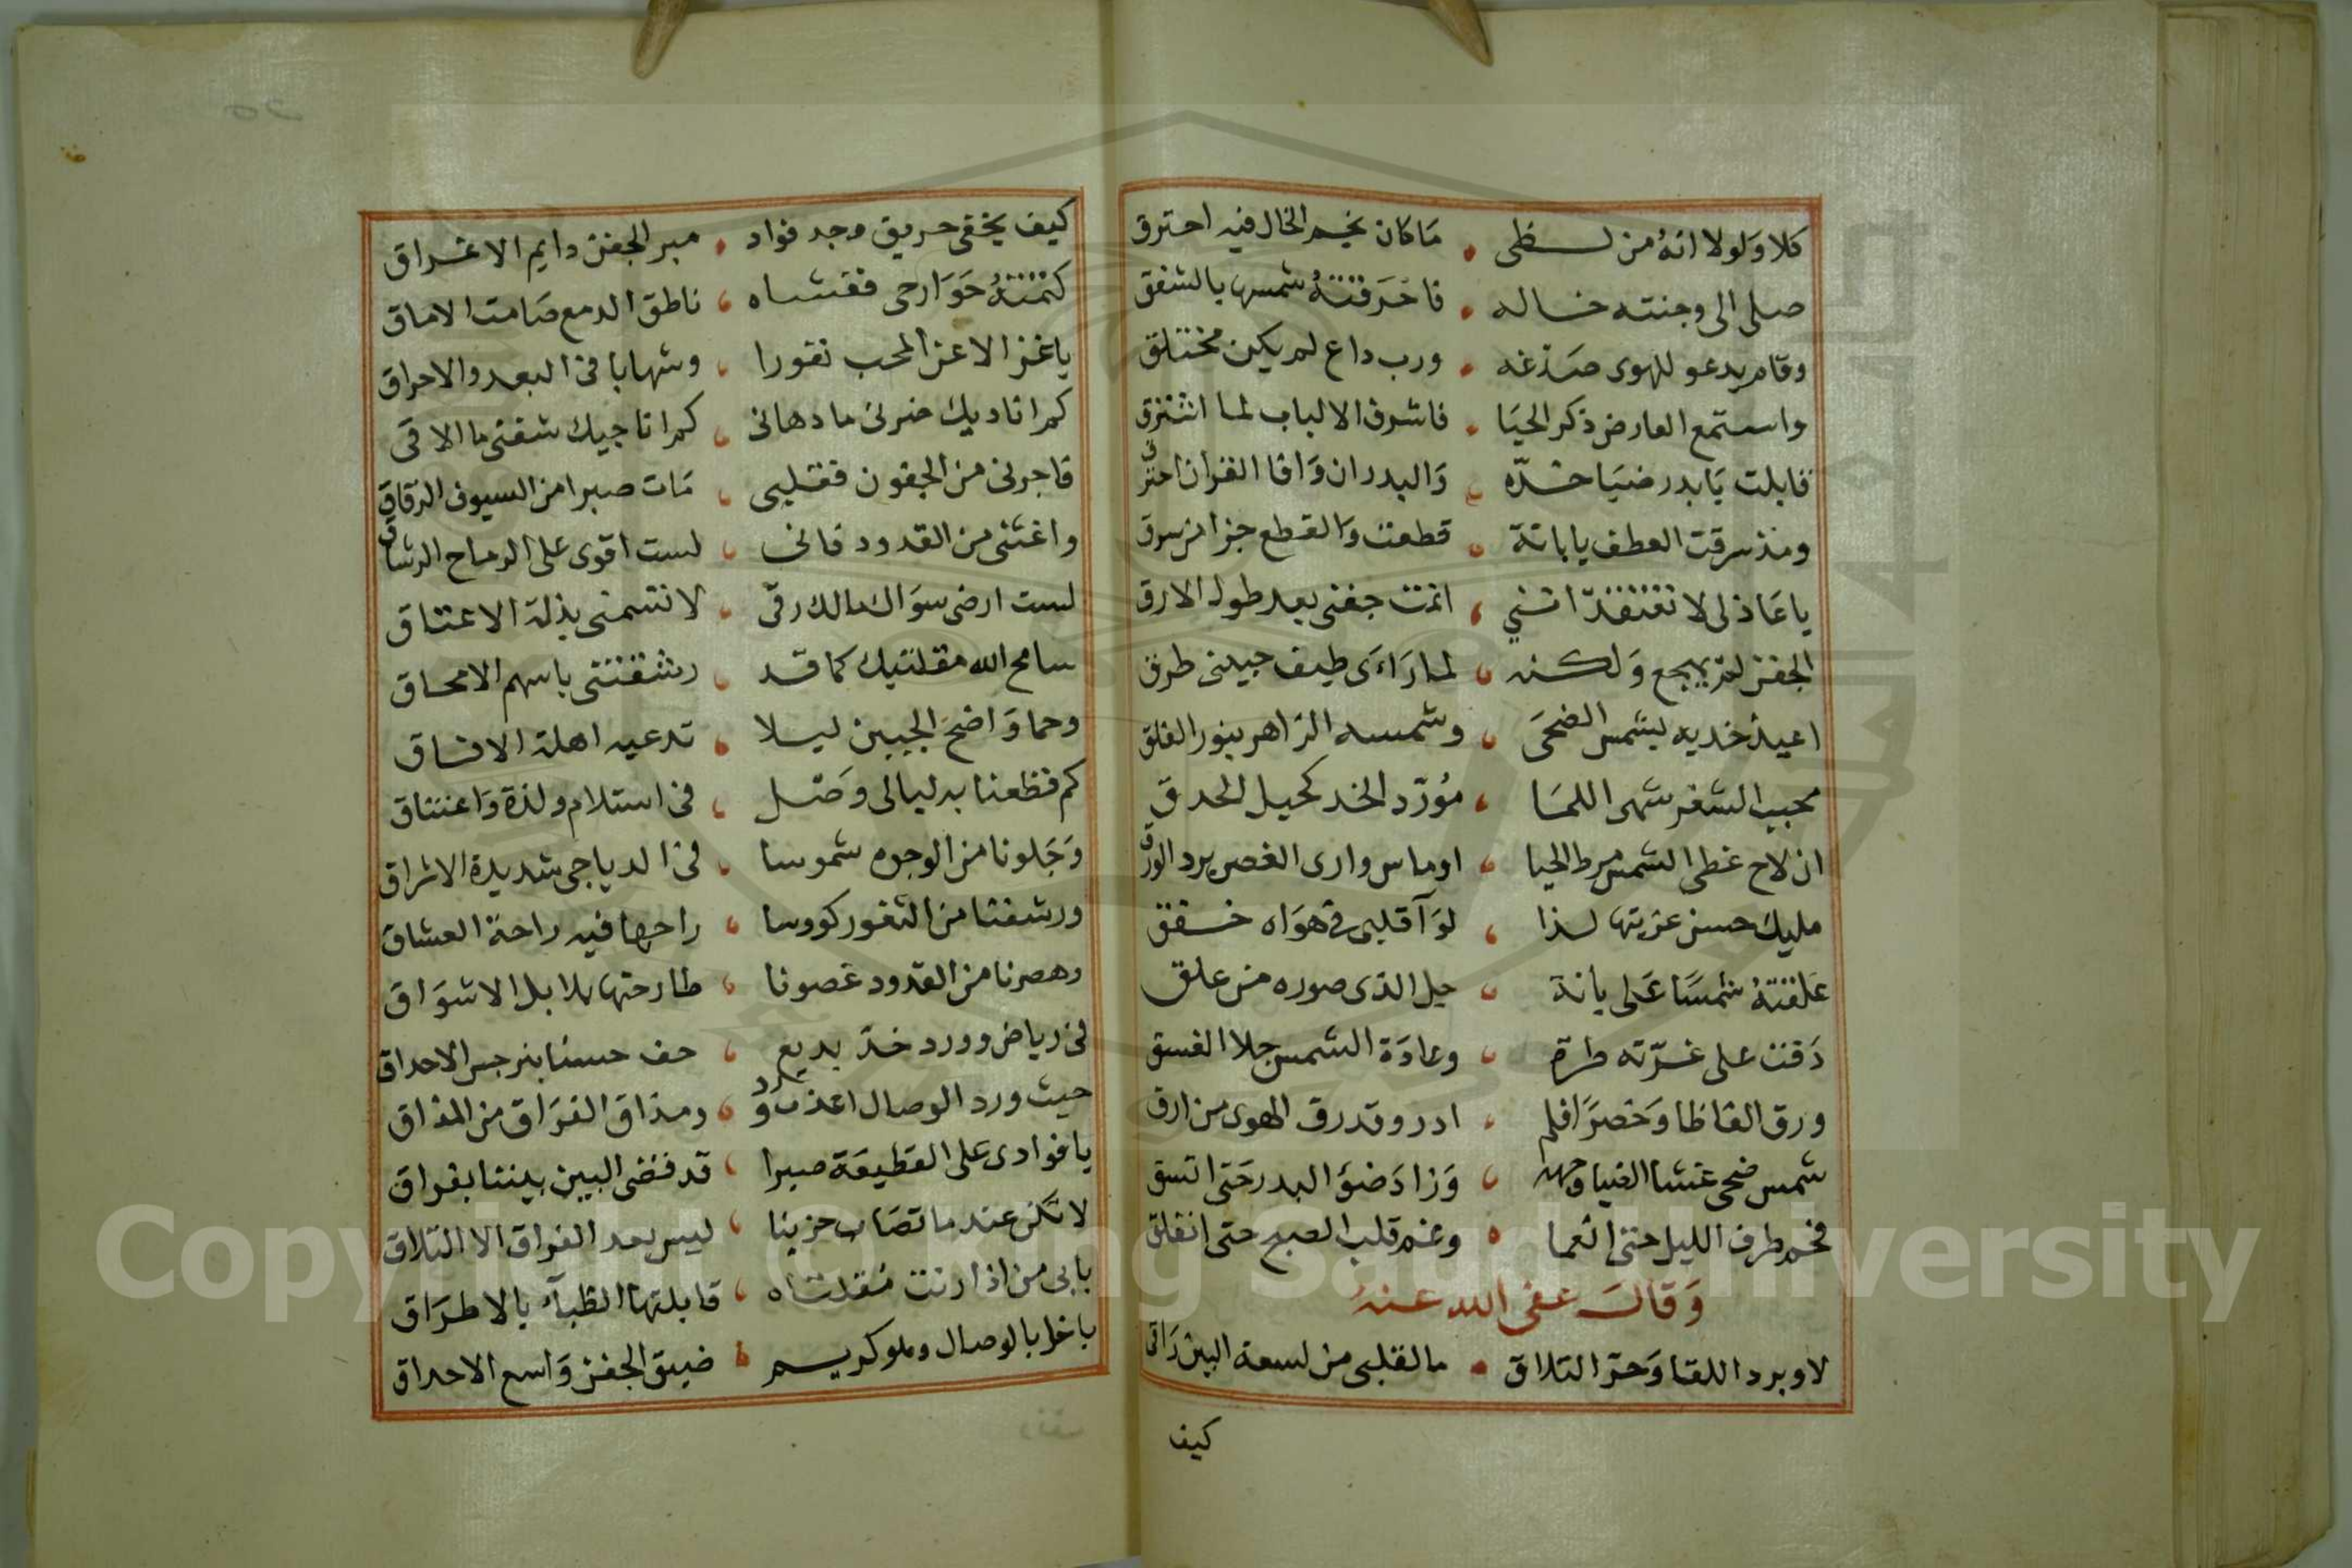 كلا ولولا انهُ من لـــظى • مَا كان بخيم الخال فيه احترق
صلى الى وجنته خــاله • فاحَرَقتهُ شمسها بالشفق
وقام يدعو للهوى صَدغه • ورب داع لم يكن مختلق
واستمع العارض ذكر الحيَا • فاشرف الالباب لما اشترق
قابلت يَا بدر ضيَا خــدّه • وَالبدر ان وَافا القران احترق
ومذ سرقت العطف يا بانة • قطعت وَالقطع جزا من سرق
يا عَاذلى لا تعتقد اننى • انمت جفنى بعد طول الارق
الجفن لم يهجع وَلكنه • لما رَاءَى طيف حبيبى طرق
اعيذ خديه بشمس الضحَى • وشمسه الزاهر بنور الفلق
محبب الثغر شهى اللمَا • مُورّد الخد كحيل الحدق
ان لاح غطى الشمس مرط الحيا • او ماس وارى الغصن برد الورق
مليك حسن عزيتها لــذا • لوَآ قلبى فى هوَاه خــفق
عَلقتهُ شمسًا عَلى بانة • جل الذى صوره من علق
دَقت على غــرّته طرة • وعادَة الشمس جلا الغسق
ورق الفاظا وَخصرًا فلم • ادر وقد رق الهوى من ارق
شمس ضحى غشا الضيا وجهه • وَزادَ ضوْ البدر حَتى اتسق
فحم طرف الليل حتى انعما • وغم قلب الصبح حتى انفلق
وَقالَ عفى الله عنهُ
لا وبرد اللقا وَحرّ التلاق • ما لقلبى من لسعة البين رَاقى
كيف
كيف يخفى حريق وجد فواد • مبر الجفن دايم الاغــراق
كتمتهُ جَوَارحى ففشاه • ناطق الدمع صَامت الاماق
يا غزالا عن المحب نفورا • وشهابا فى البعد والاحراق
كم اناديك ضرنى ما دهانى • كم اناجيك شفنى ما الاقى
فاجرنى من الجفون فقلبى • مَات صبرا من السيوف الرّقاق
واغثنى من القدود فانى • لست اقوى على الرماح الرشاق
لست ارضى سوَاك مالك رقى • لا تسمنى بذلة الاعتاق
سامح الله مقلتيك كما قد • رشقتنى باسهم الامحاق
وحما وَاضحَ الجبين ليلا • تدعيه اهلة الافاق
كم قطعنا به ليالى وَصل • فى استلام ولذة وَاعتناق
وَجَلونا من الوجوه شموسا • فى الدياجى شديدة الاشراق
ورشفنا من الثغور كووسا • راحها فيه راحة العشاق
وهصرنا من القدود غصونا • طارحتها بلابل الاشوَاق
فى رياض وورد خدّ بديع • حف حسنا بنرجس الاحداق
حيث ورد الوصال اعذب ورد • ومذاق الفرَاق من المذاق
يا فوادى على القطيعَة صبرا • قد قضى البين بيننا بفراق
لا تكن عند ما تصَاب حزينا • ليس بعد الفراق الا التلاق
بابى من اذا رنت مُقلتاه • قابلتها الظبآء بالاطرَاق
باخل بالوصال وهو كريــم • ضيق الجفن وَاسع الاحداق
Copyright © King Saud University